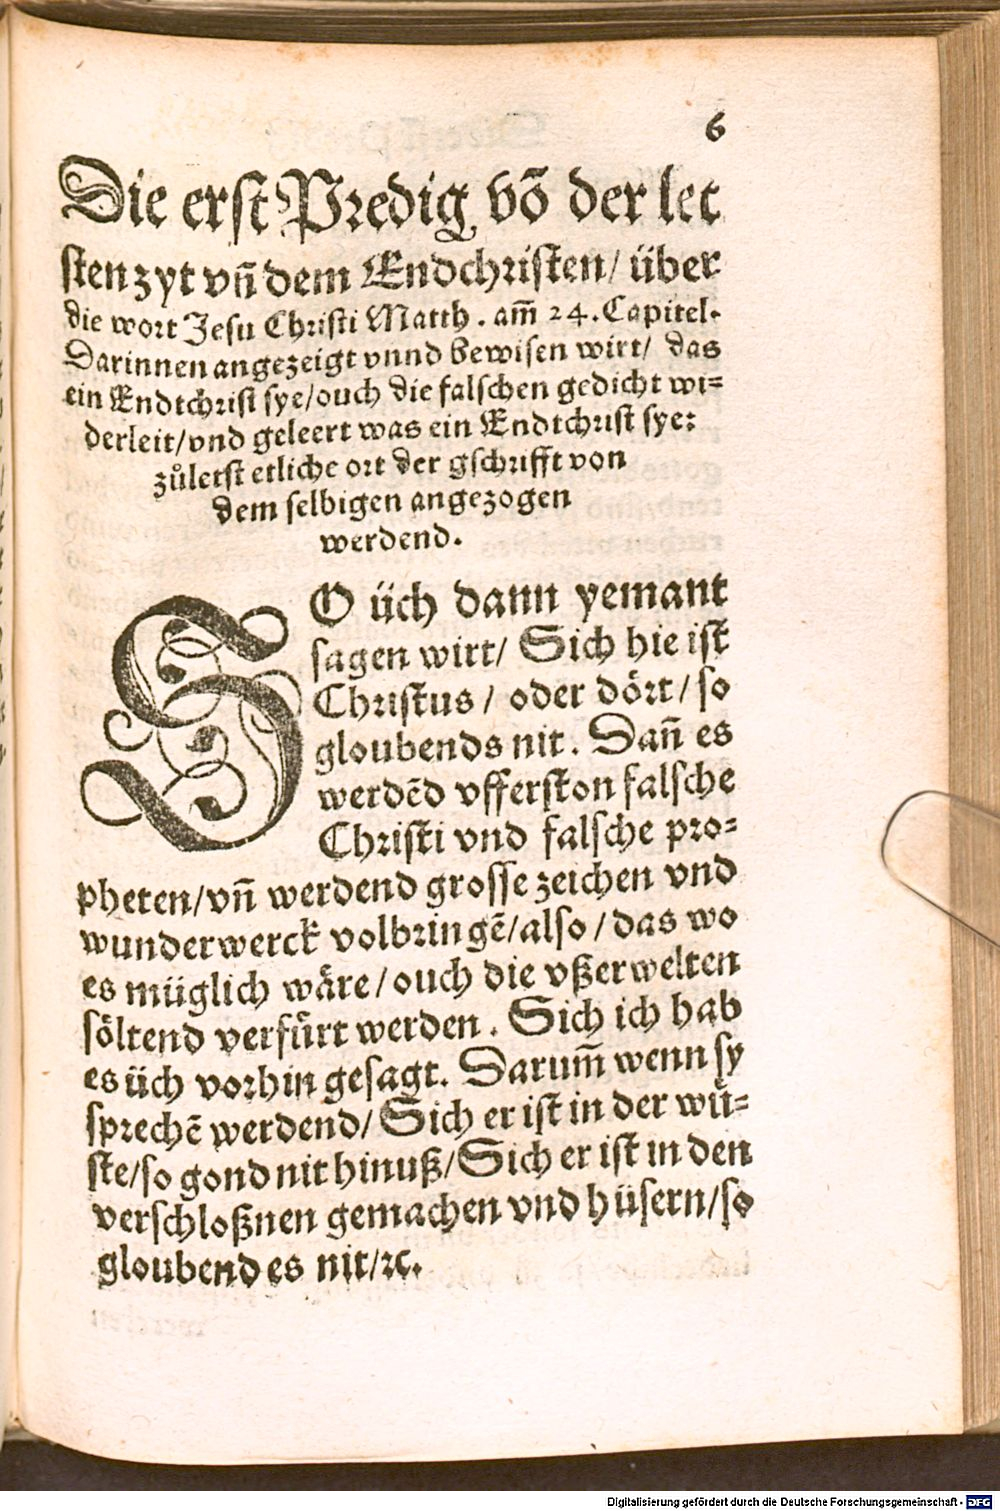 6
Die erst Predig võ der let
sten zyt vn̄ dem Endchristen/ über
die wort Jesu Christi Matth. am̄ 24. Capitel.
Darinnen angezeigt vnnd bewisen wirt/ das
ein Endtchrist sye/ouch die falschen gedicht wi=
derleit/vnd geleert was ein Endtchrist sye:
zůletst etliche ort der gschrifft von
dem selbigen angezogen
werdend.
SO üch dann yemant
sagen wirt/ Sich hie ist
Christus / oder dört / so
gloubends nit. Dan̄ es
werdēd vfferston falsche
Christi vnd falsche pro=
pheten/vn̄ werdend grosse zeichen vnd
wunderwerck volbringē/also / das wo
es müglich wäre / ouch die vßerwelten
söltend verfürt werden. Sich ich hab
es üch vorhin gesagt. Darum̄ wenn sy
sprechē werdend/ Sich er ist in der wü=
ste/so gond nit hinuß/Sich er ist in den
verschloßnen gemachen vnd hüsern/so
gloubend es nit/ꝛc.
Digitalisierung gefördert durch die Deutsche Forschungsgemeinschaft - DFG